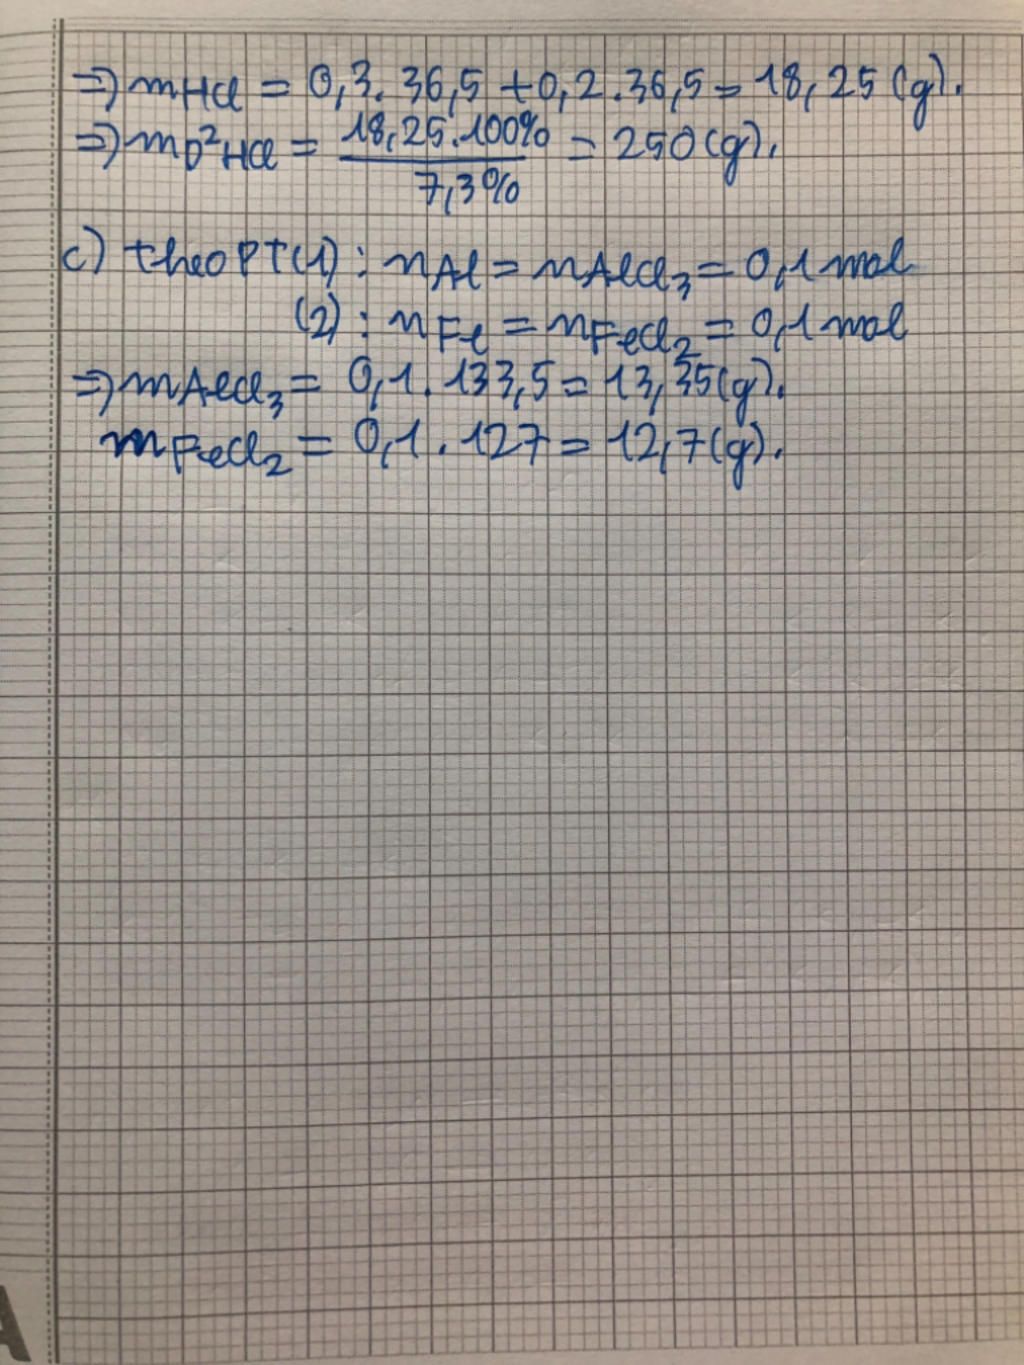 => mHCl = 0,3. 36,5 + 0,2 . 36,5 = 18,25 (g).
=> mD²HCl = 18,25.100% / 7,3% = 250 (g).
c) theo PT(1) : nAl = nAlCl₃ = 0,1 mol
(2) : nFe = nFeCl₂ = 0,1 mol
=> mAlCl₃ = 0,1. 133,5 = 13,35 (g).
mFeCl₂ = 0,1 . 127 = 12,7 (g).
A